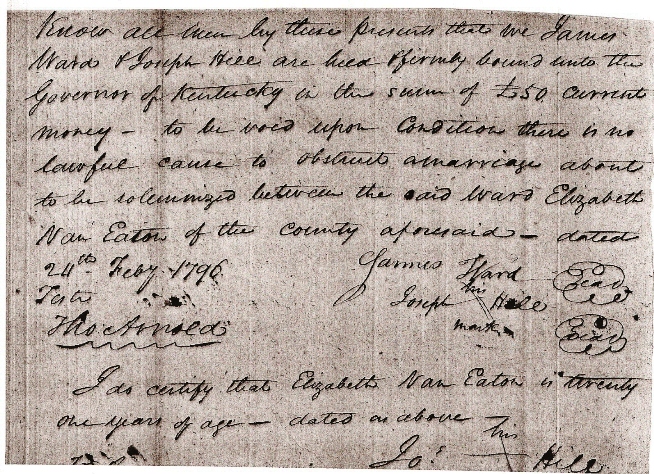 Know all men by these presents that we James
Ward & Joseph Hill are held & firmly bound unto the
Governor of Kentucky in the sum of £50 current
money – to be void upon Condition there is no
lawful cause to obstruct a marriage about
to be solemnized between the said Ward Elizabeth
Van Eaton of the County aforesaid – dated
24th Feby 1796
James Ward Seal
Teste
Joseph his mark Hill Seal
Tho Arnold
I do certify that Elizabeth Van Eaton is twenty
one years of age – dated as above
Jos his Hill